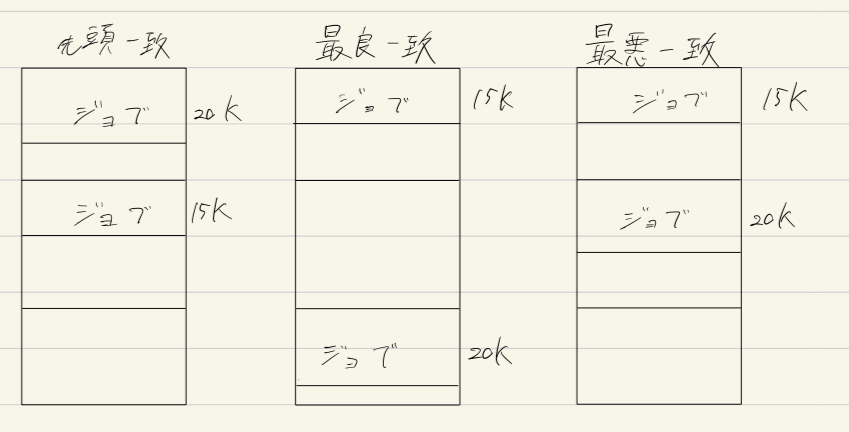 先頭一致
ジョブ 20K
ジョブ 15K
最良一致
ジョブ 15K
ジョブ 20K
最悪一致
ジョブ 15K
ジョブ 20K